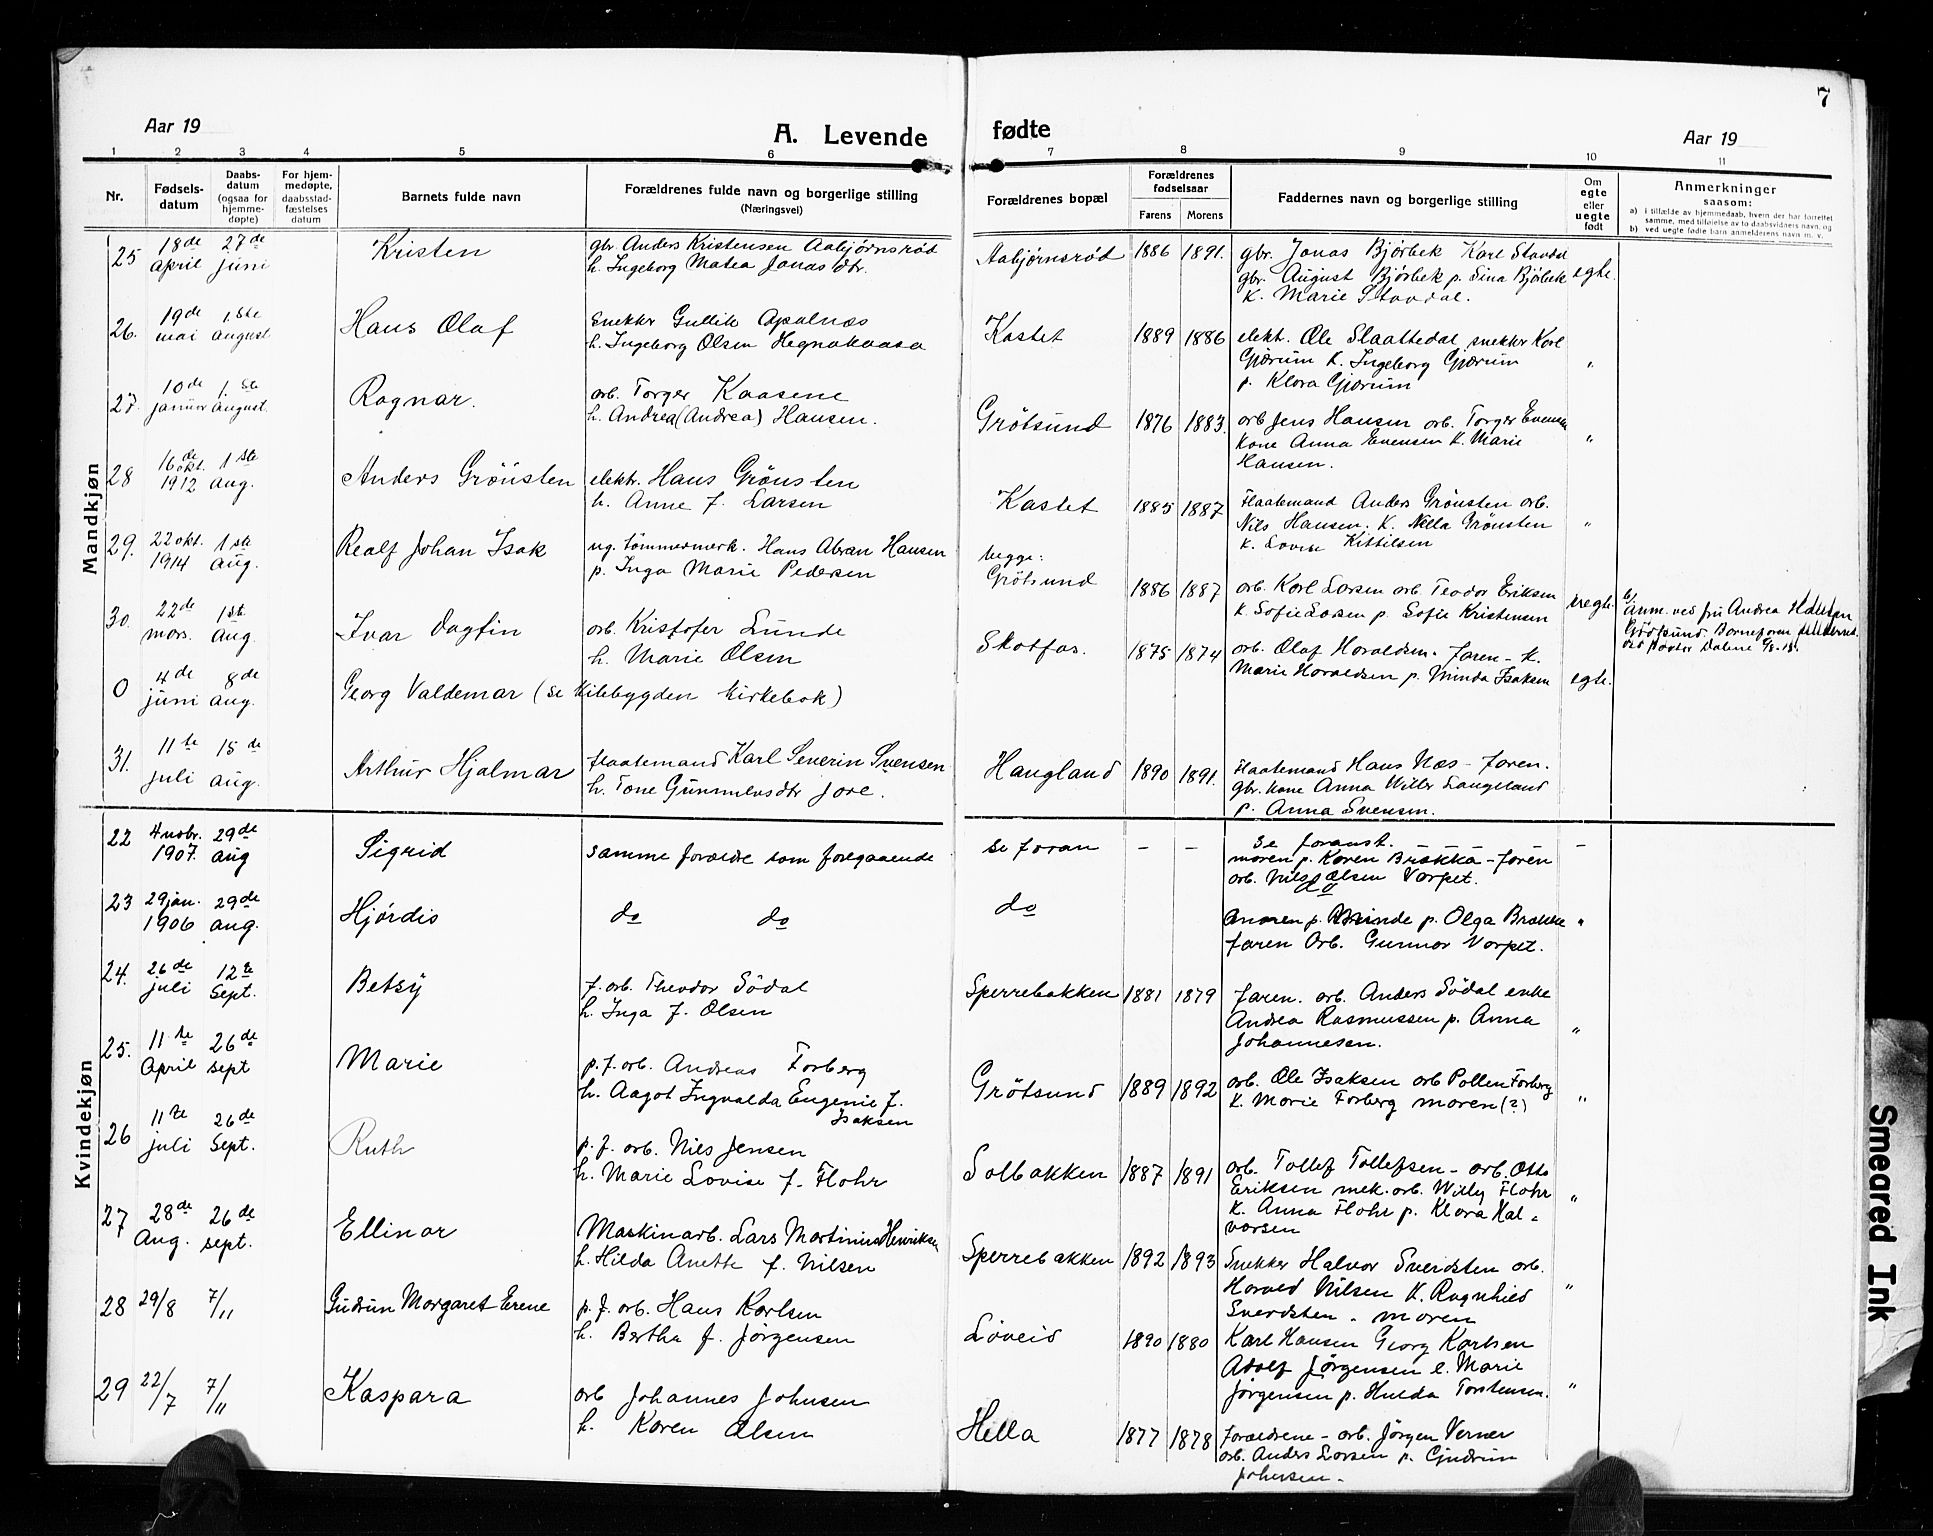 7
Aar 19
A. Levende fødte
Aar 19
1 2 3 4 5 6 7 8 9 10 11
Nr.
Fødsels-
datum
Daabs-
datum
(ogsaa for
hjemme-
døpte)
For hjem-
medøpte,
daabsstad-
fæstelses
datum
Barnets fulde navn
Forældrenes fulde navn og borgerlige stilling
(Næringsvei)
Forældrenes bopæl
Forældrenes
fødselsaar
Farens Morens
Faddernes navn og borgerlige stilling
Om
egte
eller
uegte
født
Anmerkninger
saasom:
a) i tilfælde av hjemmedaab, hvem der har forrettet
samme, med tilføielse av to daabsvidners navn, og
b) ved uegte født barn anmelderens navn m. v.
Mandkjøn
25 18de april 27de juni Kristen
gbr. Anders Kristensen Aabjørnsrød
h. Ingeborg Matea Jonasdtr.
Aabjørnsrød 1886 1891.
gbr. Jonas Bjørbek Karl Stavdal
gbr. August Bjørbek p. Sina Bjørbek
k. Marie Stavdal.
egte.
26. 19de mai 1ste august Hans Olaf
snekker Gullik Apalnæs
h. Ingeborg Olsen Hegnakaasa
Kastet 1889 1886
elekt. Ole Slaattedal, snekker Karl
Gjærum k. Ingeborg Gjærum
p. Klara Gjærum
"
27. 10de januar 1.ste august. Ragnar.
arb. Torger Kaasene
h. Andrea (Andrea) Hansen.
Grøtsund 1876 1883.
arb Jens Hansen arb. Torger Evensen
kone Anna Evensen k. Marie
Hansen.
"
28 16de okt. 1912 1ste Aug. Anders Grönsten
elektr. Hans Grönsten
h. Anne f. Larsen
Kastet 1885 1887
Flaatemand Anders Grønsten arb.
Nils Hansen. K. Nella Grønsten
k. Lovise Kittilsen
"
29. 22 okt. 1914 1ste Aug. Realf Johan Isak
ug. tømmermerk. Hans Abran Hansen
p. Inga Marie Pedersen
begge:
Grøtsund 1886 1887
arb. Karl Larsen arb Teodor Eriksen
k. Sofie Larsen p. Sofie Kristensen
uegte.
b) Anm. ved fru Andrea Hansen
Grøtsund.
30. 22de mars. 1ste Aug. Ivar Dagfin
arb. Kristofer Lunde
h. Marie Olsen
Skotfos. 1875 1874
arb. Olaf Haraldsen. faren - k.
Marie Haraldsen p. Minda Isaksen
egte.
0 4de juni 8de aug. Georg Valdemar (se Kilebygden kirkebok)
31. 11te juli 15de aug. Arthur Hjalmar
flaatemand Karl Severin Svensen
h. Tone Gunnulvsdtr Jore.
Haugland 1890 1891.
Flaatemand Hans Næs - faren.
gbr. kone Anna Willer Langeland
p. Anna Svensen.
Kvindekjøn
22 4 novbr. 1907 29de aug Sigrid
samme forældre som foregaaende
se foran - -
se foranst. - - -
moren p. Karen Brakka - faren
arb. Nils Olsen Vorpet.
-
23 29 jan. 1906 29de aug. Hjørdis
do do
do
do
moren p. Minde p. Olga Brakke
faren Arb. Gunnar Vorpet.
"
24. 26de juli 12te Sept. Betsy
f. arb. Theodor Södal
h. Inga f. Olsen
Sperrebakken 1881 1879
faren. arb. Anders Södal enke
Andrea Rasmussen p. Anna
Johannesen.
"
25. 11te April 26de sept Marie
p. f. arb. Andreas Forberg
h. Aagot Ingvalda Eugenie f.
Isaksen
Grøtsund 1889 1892
arb. Ole Isaksen arb Pollen Forberg
k. Marie Forberg moren (?)
"
26 11te juli 26de Sept. Ruth
p. f. arb. Nils Jensen
h. Marie Lovise f. Flohr
Solbakken 1887 1891
arb. Tollef Tollefsen - arb. Otto
Eriksen mek. arb. Willy Flohr
k. Anna Flohr p. Klara Hal-
vorsen
"
27 28de Aug. 26de sept. Ellinor
Maskinarb. Lars Martinius Henriksen
h. Hilda Anette f. Nilsen
Sperrebakken 1892 1893
Snekker Halvor Sverdsten arb.
Harald Nilsen k. Ragnhild
Sverdsten. moren
"
28 29/8 7/11 Gudrun Margaret Erene
p. f. arb. Hans Karlsen
h. Bertha f. Jørgensen
Løveid 1890 1880
Karl Hansen Georg Karlsen
Adolf Jørgensen e. Marie
Jørgensen p. Hulda Torstensen.
"
29 22/7 7/11 Kaspara
arb Johannes Johnsen
h. Karen Olsen
Hella 1877 1878
Forældrene - arb. Jörgen Verner
arb. Anders Larsen p. Gjudrun
Johnsen.
Smeared Ink